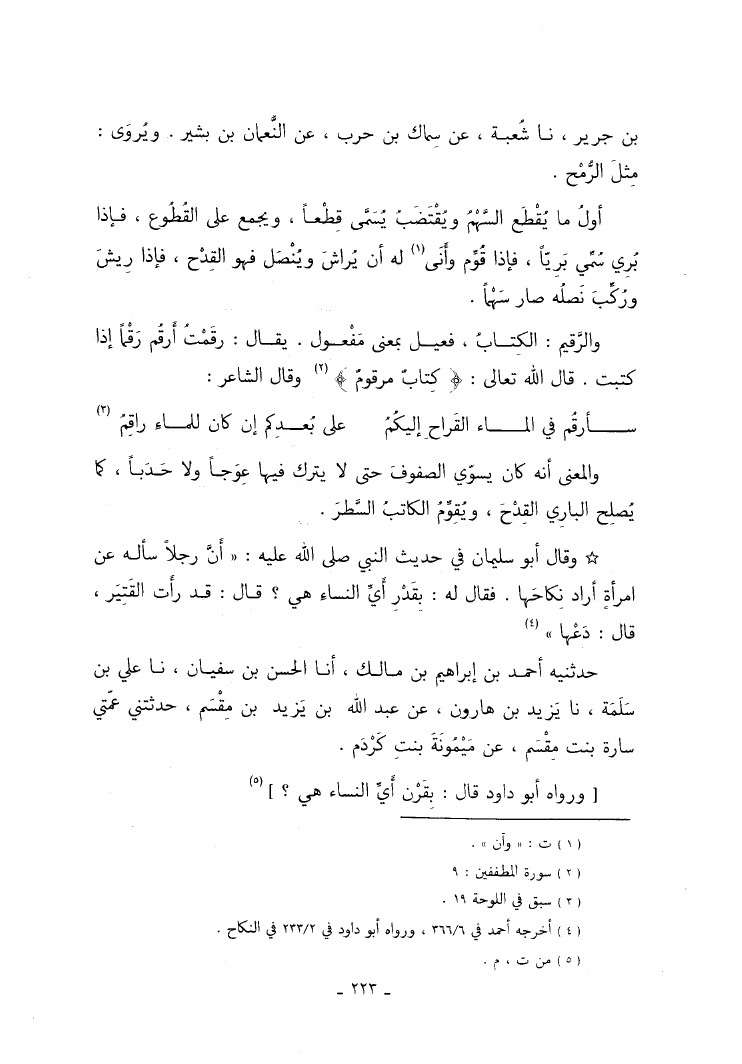 بن جرير ، نا شُعبة ، عن سماك بن حرب ، عن النُّعمان بن بشير . ويُروَى :
مِثلَ الرُّمْح .
أولُ ما يُقْطَع السَّهْمُ ويُقْتَضَبُ يُسَمَّى قِطْعاً ، ويجمع على القُطُوع ، فإذا
بُرِي سُمِّي بَرِيّاً ، فإذا قُوِّم وأَنَى(١) له أن يُراشَ ويُنْصَل فهو القِدْح ، فإذا رِيشَ
ورُكِّبَ نَصلُه صار سَهْماً .
والرَّقيم : الكتابُ ، فعيل بمعنى مَفْعول . يقال : رقَمْتُ أَرقُم رَقْماً إذا
كتبت . قال الله تعالى : ﴿ كتابٌ مرقومٌ ﴾ (٢) وقال الشاعر :
سأرقُم في الماء القَراحِ إليكُمُ على بُعدِكم إن كان للماء راقِمُ (٣)
والمعنى أنه كان يسوّي الصفوفَ حتى لا يترك فيها عِوَجاً ولا حَدَباً ، كما
يُصلِح الباري القِدْحَ ، ويُقوِّمُ الكاتبُ السَّطرَ .
☆ وقال أبو سليمان في حديث النبي صلى الله عليه : « أنَّ رجلاً سأله عن
امرأةٍ أراد نِكاحَها . فقال له : بقَدْر أَيِّ النساء هي ؟ قال : قد رأت القَتِيَر ،
قال : دَعْها » (٤)
حدثنيه أحمد بن إبراهيم بن مالك ، أنا الحسن بن سفيان ، نا علي بن
سَلَمَة ، نا يَزيد بن هارون ، عن عبد الله بن يَزيد بن مِقْسَم ، حدثتني عمّتي
سارة بنت مِقْسَم ، عن مَيْمُونَةَ بنتِ كَرْدَم .
[ ورواه أبو داود قال : بِقَرْن أَيِّ النساء هي ؟ ] (٥)
(١) ت : « وآن » .
(٢) سورة المطففين : ٩
(٣) سبق في اللوحة ١٩ .
(٤) أخرجه أحمد في ٣٦٦/٦ ، ورواه أبو داود في ٢٣٣/٢ في النكاح .
(٥) من ت ، م .
ـ ٢٢٣ ـ